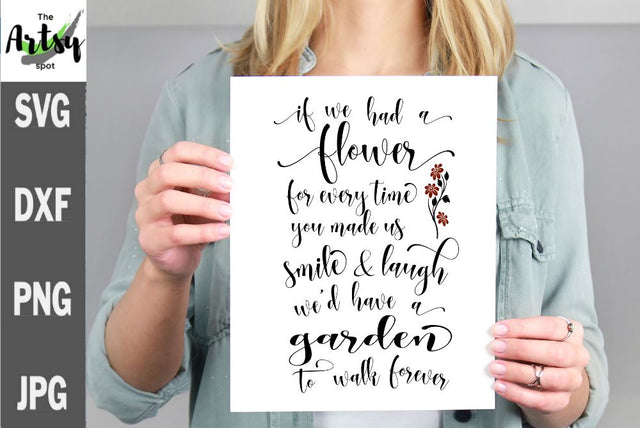 The
Artsy
spot
SVG
DXF
PNG
JPG
if we had a
flower
for every time
you made us
smile & laugh
we'd have a
garden
to walk forever